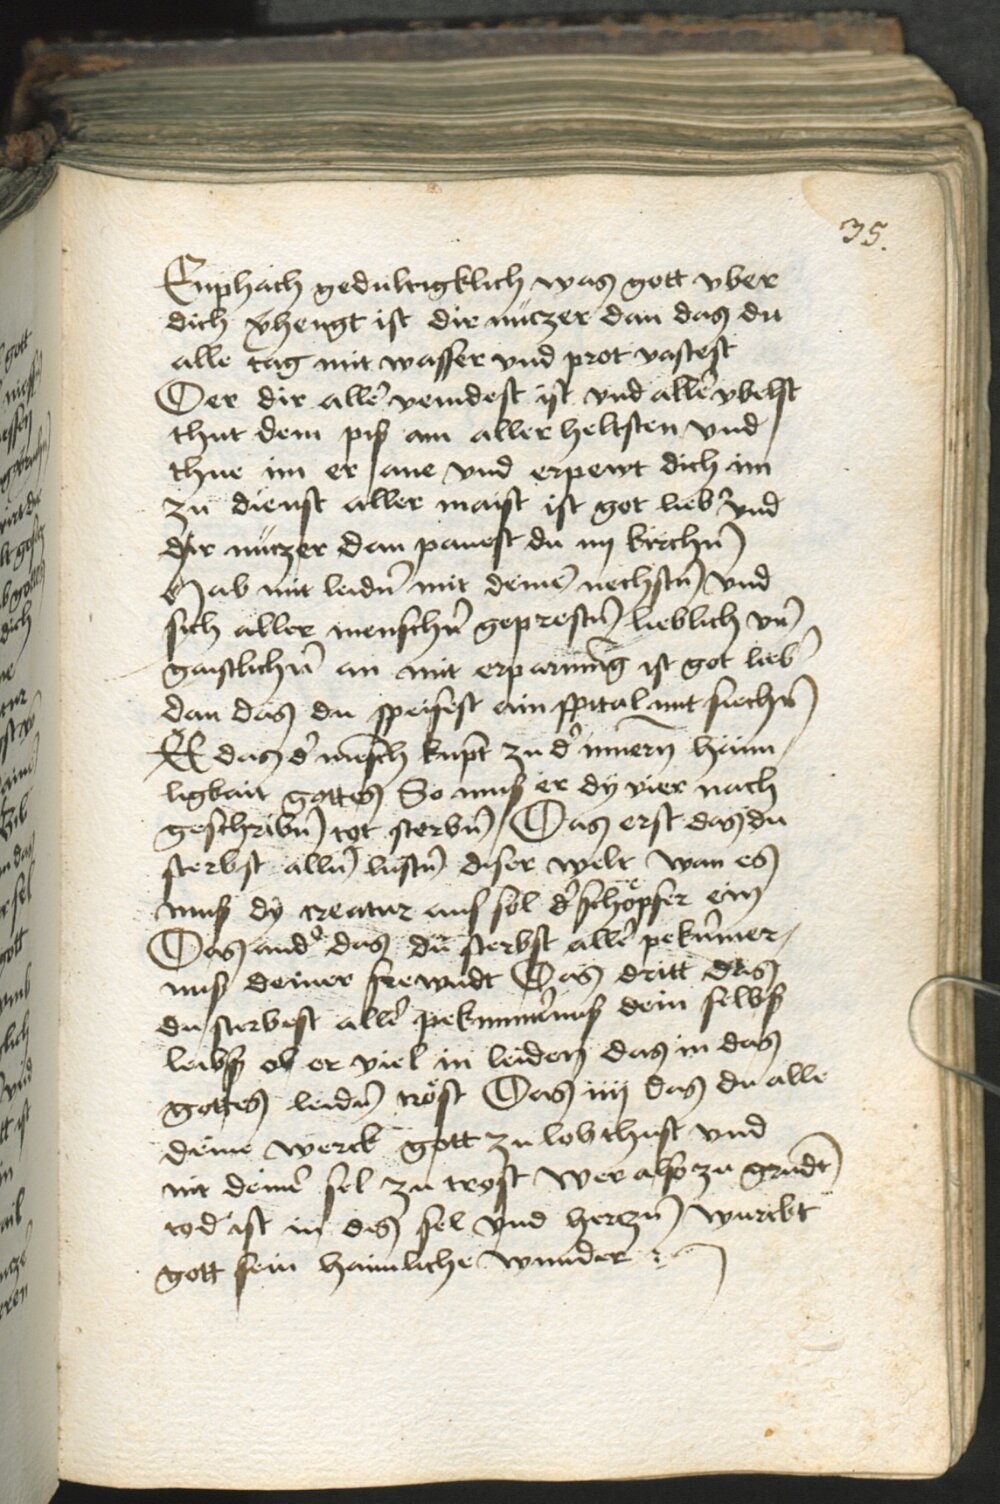 35.
Enphach gedultigklich was gott vber
dich v̄hengt ist dir nüczer dan das du
alle tag mit wasser vnd prot vastest
Der dir alle᷑ veindest ist vnd alle᷑ vbelst
thut dem piß am aller heltsten vnd
thue im er ane vnd erpewt dich im
zu dienst aller maist ist got lieb᷑ vnd
dir nüczer dan pauest du iiij kirchn̄
Hab mit leidn̄ mit deinē nechstn̄ vnd
sich aller menschn̄ geprestn̄ lieblich vn̄
gaistlichn̄ an mit erparmūg ist got lieb᷑
dan das du speisest ein spital mit siechn̄
E das d᷑ mēsch kupt zu d᷑ innern haim
ligkait gottes So muß er dy vier nach
geschribn̄ tot sterbn̄ / Das erst das du
sterbst alln̄ lustn̄ diser welt wan es
muß dy creatur auß sol d᷑ schöpfer ein
Das and᷑ das du sterbst alle᷑ pekūmer
nuß deiner frewndt Das dritt das
du sterbest alle᷑ pekummernuß dein selbß
leibß ob er viel in leiden das in das
gottes leidn̄ tröst Das iiij das du alle
deine werck gott zu lob thust vnd
nit deine᷑ sel zu trost Wer also zu grūdt
tod ist in des sel vnd herczn̄ wurckt
gott sein haimliche wunder